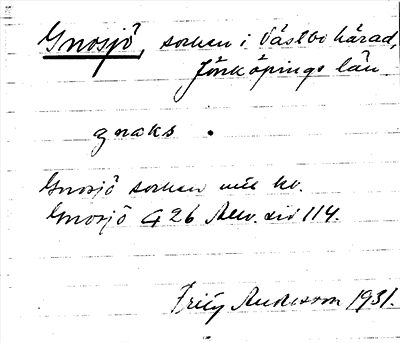 Gnosjö, socken i Västbo härad,
Jönköpings län
gnoks .
Gnosjö socken
Gnosjö G 26 sid 114.
Andersson 1931.